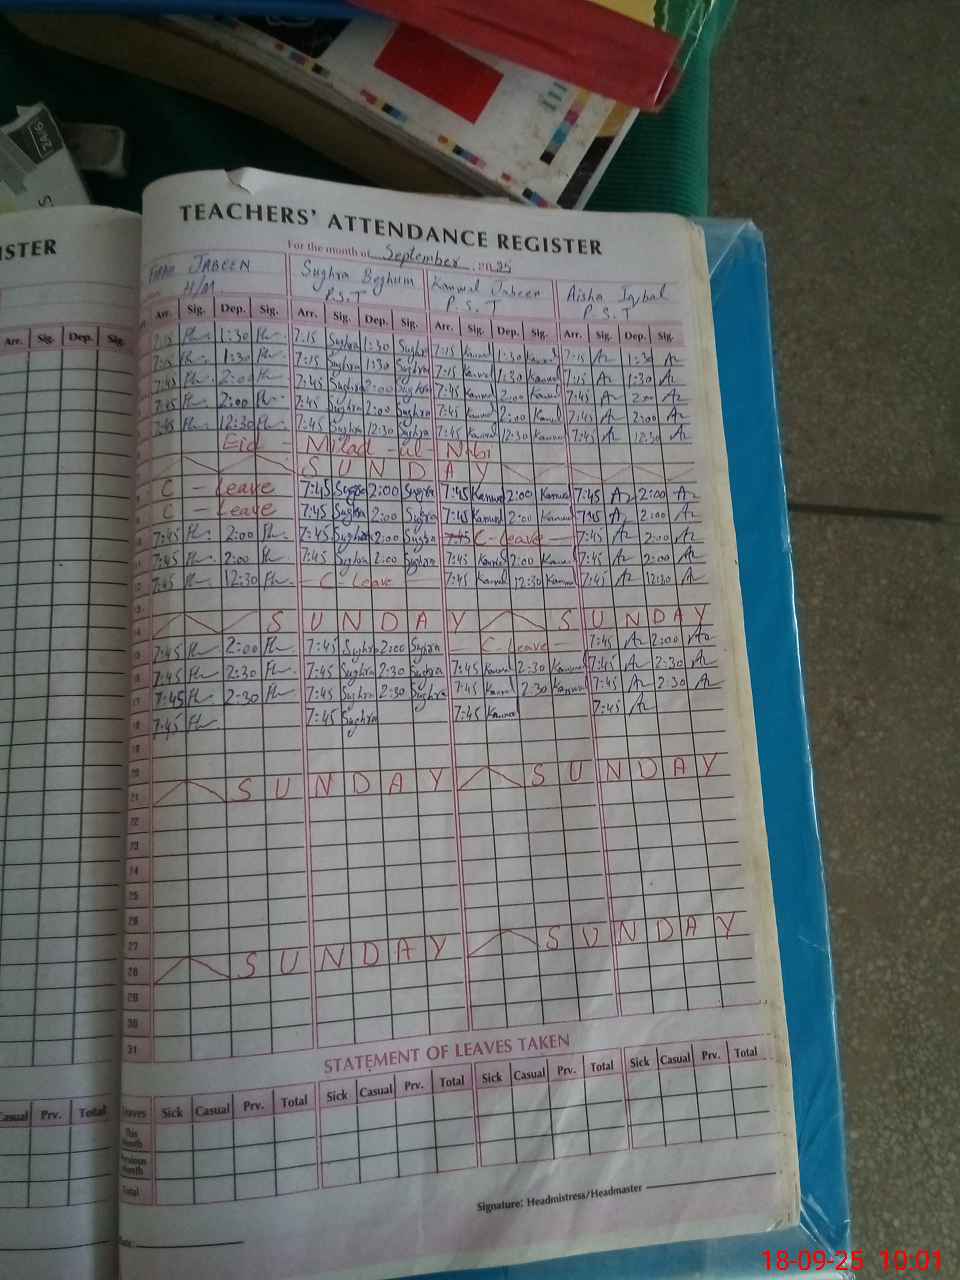 ISTER
TEACHERS' ATTENDANCE REGISTER
For the month of September 2025
JABEEN H/M Sughra Beghum P.S.T Kanwal Jabeen P.S.T Aisha Iqbal P.S.T
Arr. Sig. Dep. Sig. Arr. Sig. Dep. Sig. Arr. Sig. Dep. Sig. Arr. Sig. Dep. Sig.
Arr. Sig. Dep. Sig.
7:15 1:30 7:15 Sughra 1:30 Sughra 7:15 Kanwal 1:30 Kanwal 7:15 Az 1:30 Az
7:15 1:30 7:15 Sughra 1:30 Sughra 7:15 Kanwal 1:30 Kanwal 7:15 Az 1:30 Az
7:45 2:00 7:45 Sughra 2:00 Sughra 7:45 Kanwal 2:00 Kanwal 7:45 Az 2:00 Az
7:45 2:00 7:45 Sughra 2:00 Sughra 7:45 Kanwal 2:00 Kanwal 7:45 Az 2:00 Az
7:45 12:30 7:45 Sughra 12:30 Sughra 7:45 Kanwal 12:30 Kanwal 7:45 Az 12:30 Az
Eid - Milad - ul - Nabi
S U N D A Y
C - Leave 7:45 Sughra 2:00 Sughra 7:45 Kanwal 2:00 Kanwal 7:45 Az 2:00 Az
C - Leave 7:45 Sughra 2:00 Sughra 7:45 Kanwal 2:00 Kanwal 7:45 Az 2:00 Az
7:45 2:00 7:45 Sughra 2:00 Sughra 7:45 C - Leave 7:45 Az 2:00 Az
7:45 2:00 7:45 Sughra 2:00 Sughra 7:45 Kanwal 2:00 Kanwal 7:45 Az 2:00 Az
12 7:45 12:30 - C - Leave 7:45 Kanwal 12:30 Kanwal 7:45 Az 12:30 Az
13
14 S U N D A Y S U N D A Y
15 7:45 2:00 7:45 Sughra 2:00 Sughra C - Leave 7:45 Az 2:00 Az
16 7:45 2:30 7:45 Sughra 2:30 Sughra 7:45 Kanwal 2:30 Kanwal 7:45 Az 2:30 Az
17 7:45 2:30 7:45 Sughra 2:30 Sughra 7:45 Kanwal 2:30 Kanwal 7:45 Az 2:30 Az
18 7:45 7:45 Sughra 7:45 Kanwal 7:45 Az
19
20
21 S U N D A Y S U N D A Y
22
23
24
25
26
27
28 S U N D A Y S U N D A Y
29
30
31
STATEMENT OF LEAVES TAKEN
Leaves Sick Casual Prv. Total Sick Casual Prv. Total Sick Casual Prv. Total Sick Casual Prv. Total
Casual Prv. Total
This Month
Previous Month
Total
Signature: Headmistress/Headmaster
Date:
18-09-25 10:01